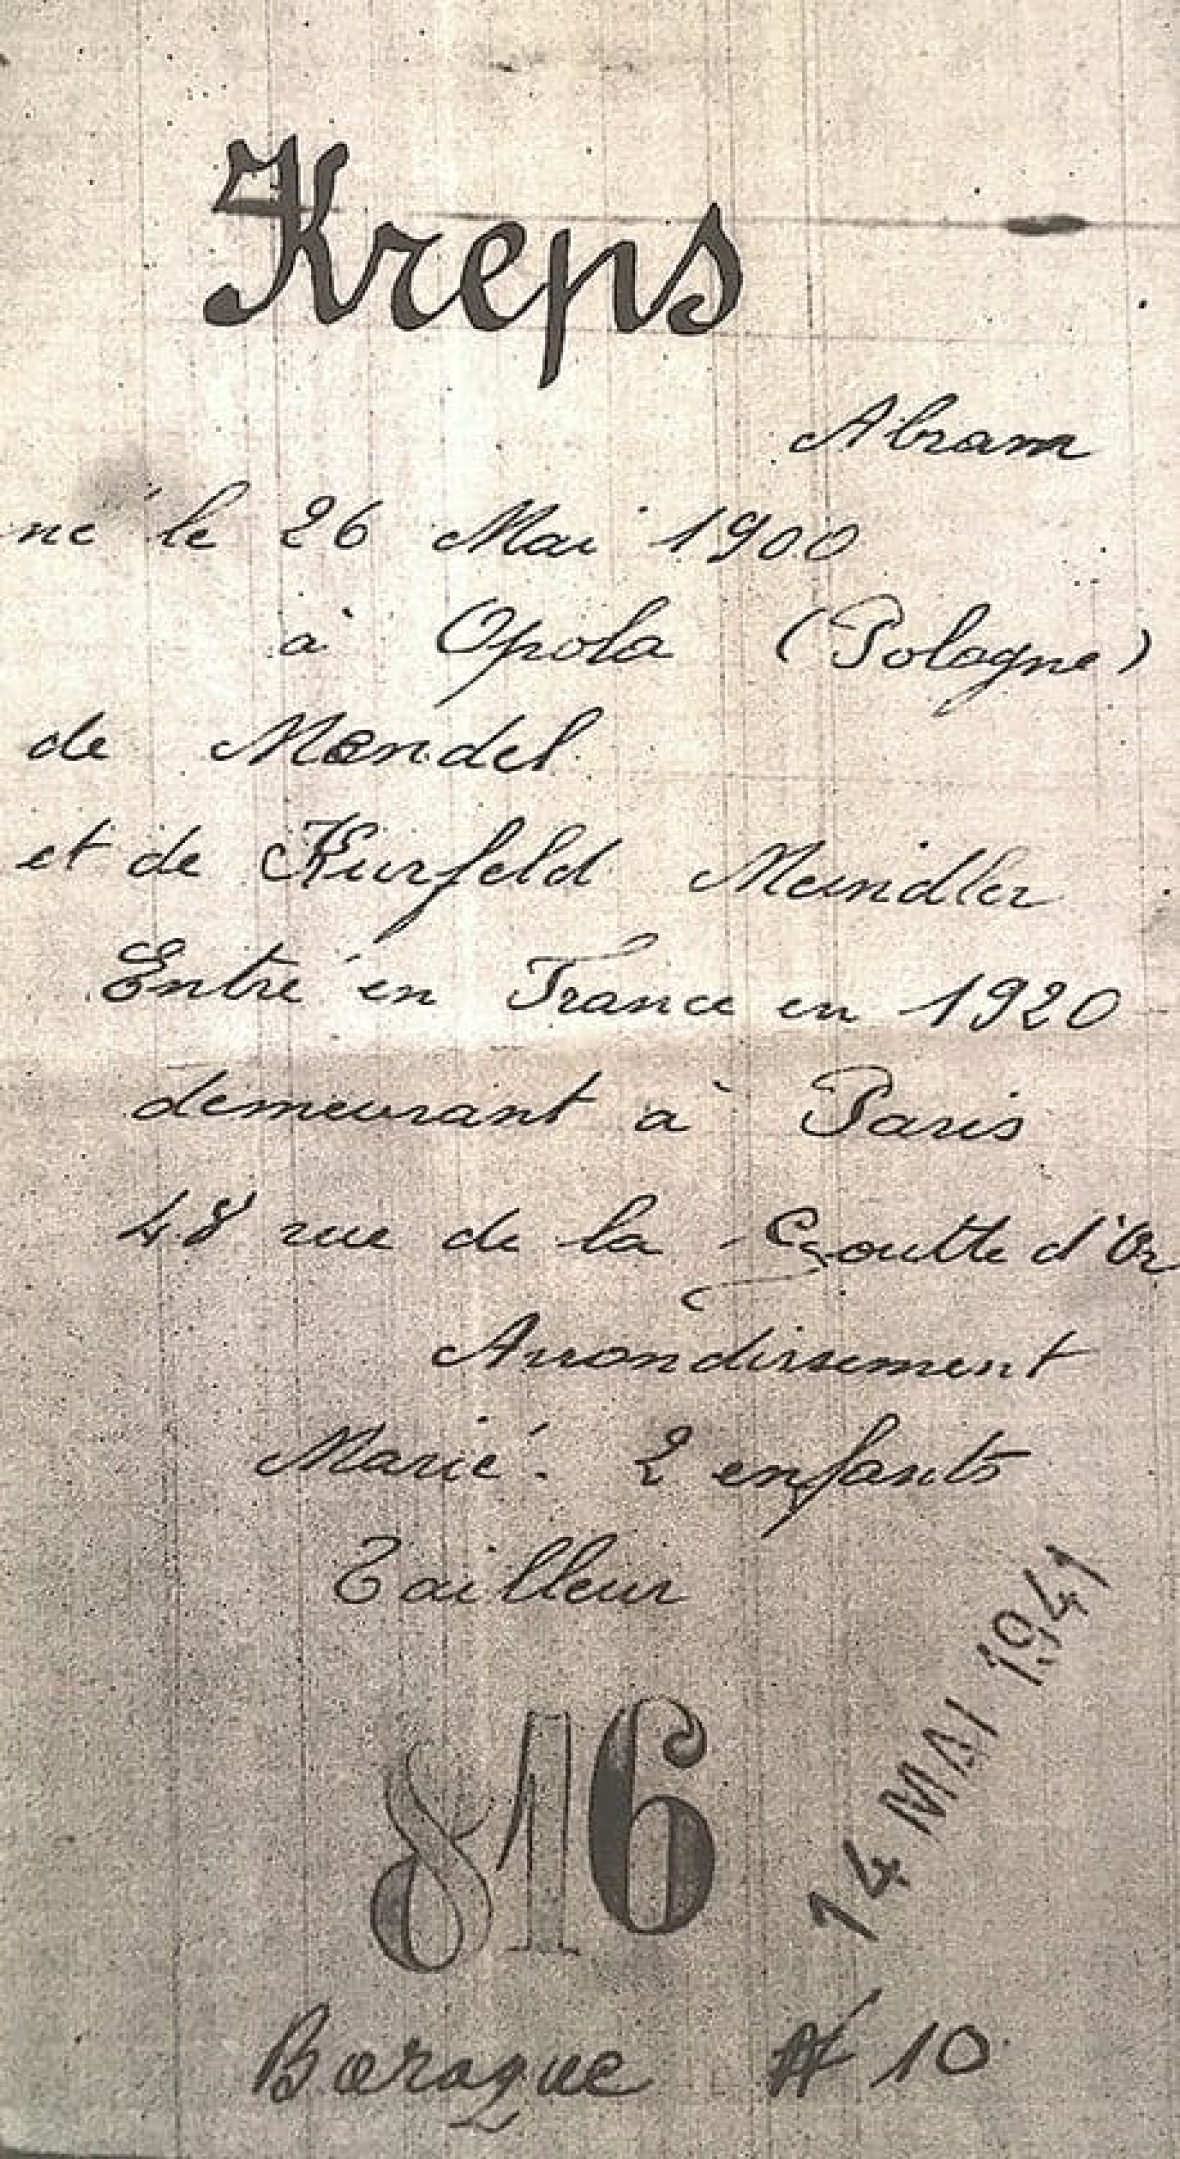 Kreps
Abram
né le 26 Mai 1900
à Opola (Pologne)
de Mendel
et de Kurfeld Meindler
Entré en France en 1920
demeurant à Paris
48 rue de la Goutte d'Or
Arrondissement
Marié. 2 enfants
Tailleur
14 MAI 1941
816
Baraque N 10